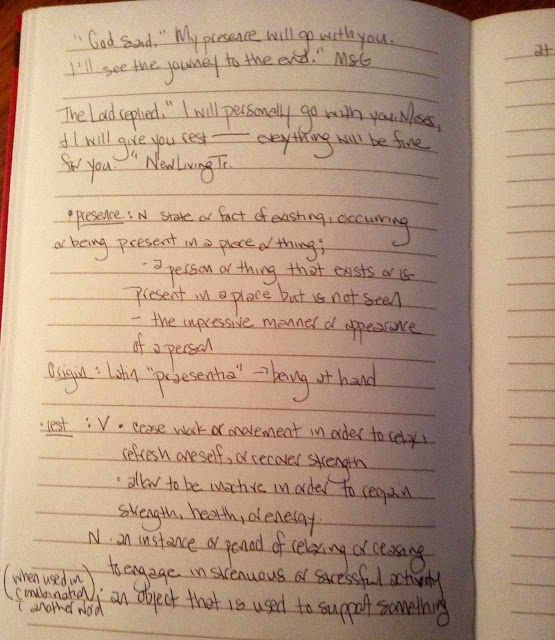 "God said," My presence will go with you.
I'll see the journey to the end." MSG
The Lord replied, "I will personally go with you, Moses,
& I will give you rest — everything will be fine
for you." New Living Tr.
• presence : N state or fact of existing, occurring
or being present in a place or thing;
- a person or thing that exists or is
present in a place but is not seen
- the impressive manner or appearance
of a person
Origin : Latin "praesentia" → being at hand
• rest : V • cease work or movement in order to relax,
refresh oneself, or recover strength
• allow to be inactive in order to regain
strength, health, or energy.
N • an instance or period of relaxing or ceasing
to engage in strenuous or stressful activity
(when used in combination c another word) : an object that is used to support something
at